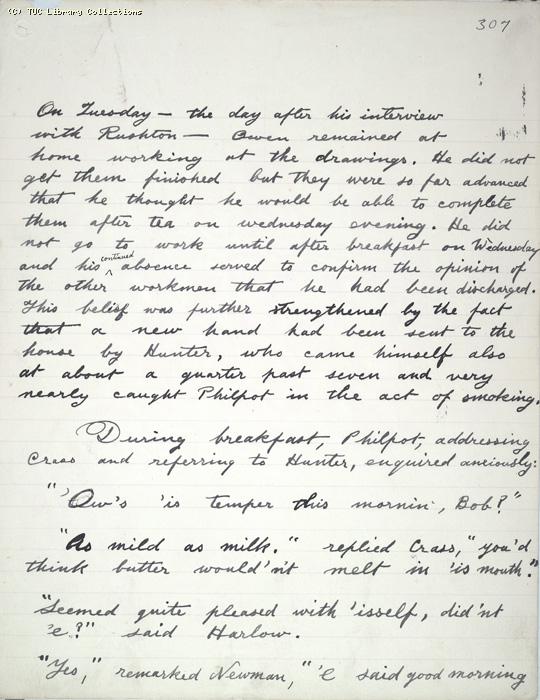 (C) TUC Library Collections
307
On Tuesday — the day after his interview
with Rushton — Owen remained at
home working at the drawings. He did not
get them finished but they were so far advanced
that he thought he would be able to complete
them after tea on wednesday evening. He did
not go to work until after breakfast on Wednesday
and his continued absence served to confirm the opinion of
the other workmen that he had been discharged.
This belief was further strengthened by the fact
that a new hand had been sent to the
house by Hunter, who came himself also
at about a quarter past seven and very
nearly caught Philpot in the act of smoking.
During breakfast, Philpot, addressing
Crass and referring to Hunter, enquired anxiously:
"'Ow's 'is temper this mornin', Bob?"
"As mild as milk." replied Crass, "you'd
think butter would'n't melt in 'is mouth."
"Seemed quite pleased with 'isself, did'nt
'e?" said Harlow.
"Yes," remarked Newman, "'e said good morning